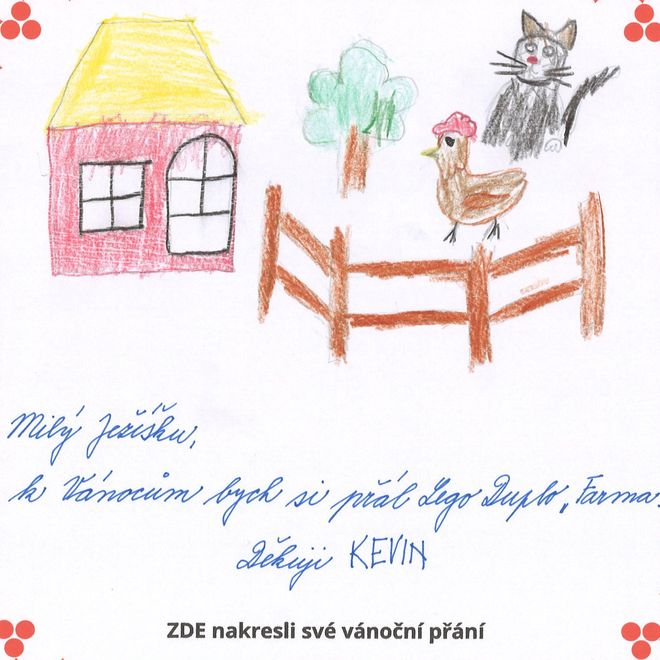 Milý Ježíšku,
k Vánocům bych si přál Lego Duplo „Farma.
Děkuji KEVIN
ZDE nakresli své vánoční přání